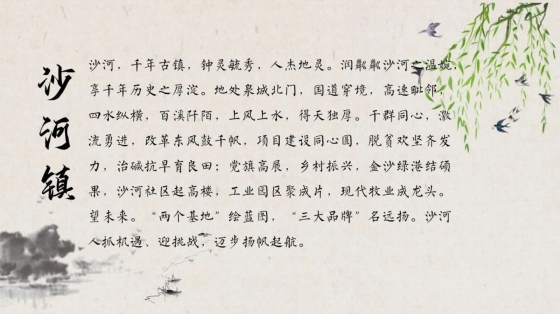 沙河镇
沙河，千年古镇，钟灵毓秀，人杰地灵。润粼粼沙河之温婉，
享千年历史之厚淀。地处泉城北门，国道穿境，高速毗邻，
四水纵横，百溪阡陌，上风上水，得天独厚。干群同心，激
流勇进，改革东风鼓千帆，项目建设同心圆，脱贫攻坚齐发
力，治碱抗旱育良田；党旗高展，乡村振兴，金沙绿港结硕
果，沙河社区起高楼，工业园区聚成片，现代牧业成龙头。
望未来。“两个基地”绘蓝图，“三大品牌”名远扬。沙河
人抓机遇、迎挑战，迈步扬帆起航。